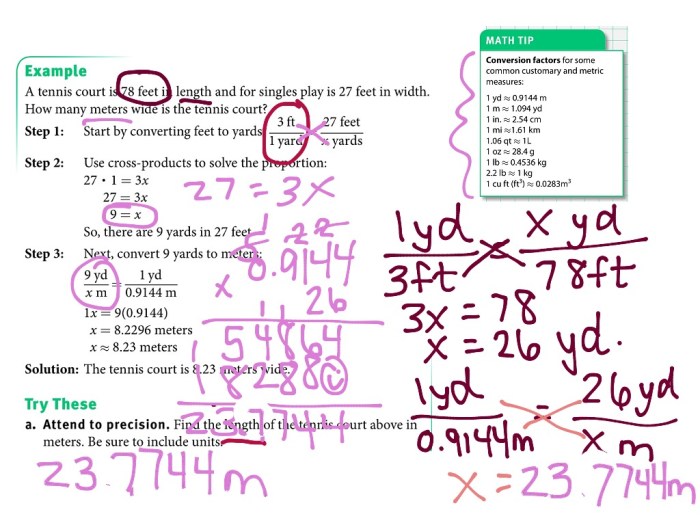 MATH TIP
Conversion factors for some
common customary and metric
measures:
1 yd ≈ 0.9144 m
1 m ≈ 1.094 yd
1 in. ≈ 2.54 cm
1 mi ≈ 1.61 km
1.06 qt ≈ 1L
1 oz ≈ 28.4 g
1 lb ≈ 0.4536 kg
2.2 lb ≈ 1 kg
1 cu ft (ft³) ≈ 0.0283m³
Example
A tennis court is 78 feet in length and for singles play is 27 feet in width.
How many meters wide is the tennis court?
Step 1: Start by converting feet to yards
3 ft 27 feet
1 yard x yards
Step 2: Use cross-products to solve the proportion:
27 · 1 = 3x
27 = 3x
27 = 3x
9 = x
So, there are 9 yards in 27 feet
Step 3: Next, convert 9 yards to meters:
9 yd = 1 yd
x m 0.9144 m
1x = 9(0.9144)
x = 8.2296 meters
x ≈ 8.23 meters
Solution: The tennis court is 8.23 meters wide.
1 22
0.9144
x 26
1 1
54864
182880
23.7744
1yd x yd
3ft 78ft
3x = 78
x = 26 yd.
1yd = 26yd
0.9144m x m
x = 23.7744m
Try These
a. Attend to precision. Find the length of the tennis court above in
meters. Be sure to include units.
23.7744m